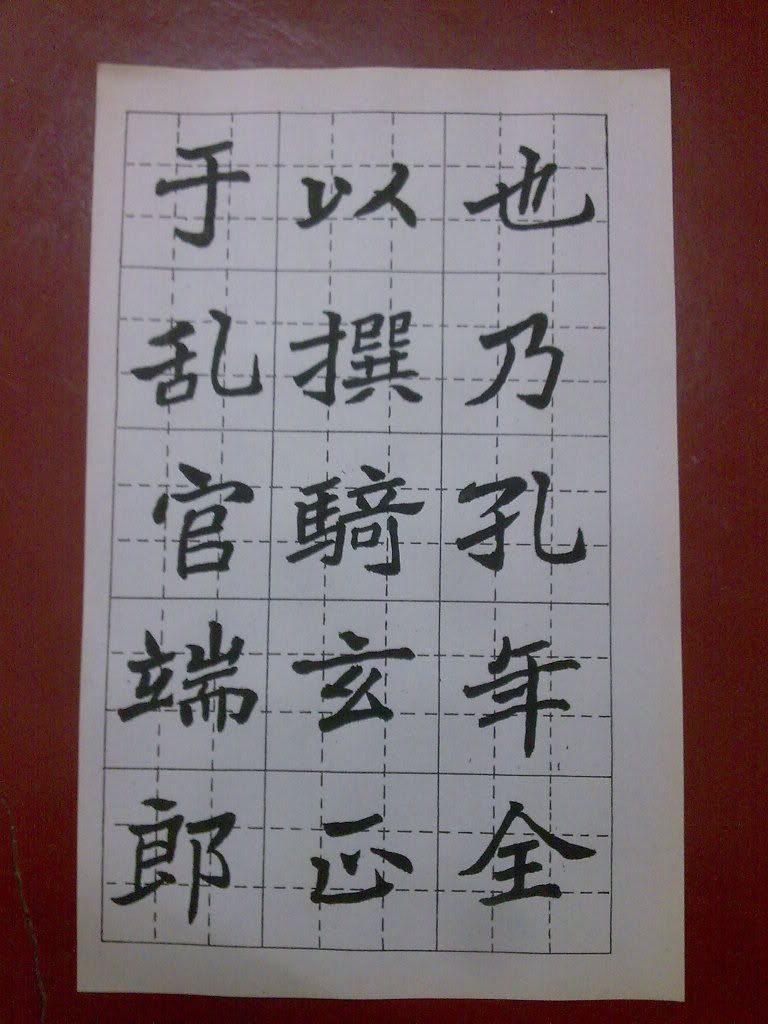 也乃孔年全
以撰騎玄正
于乱官端郎